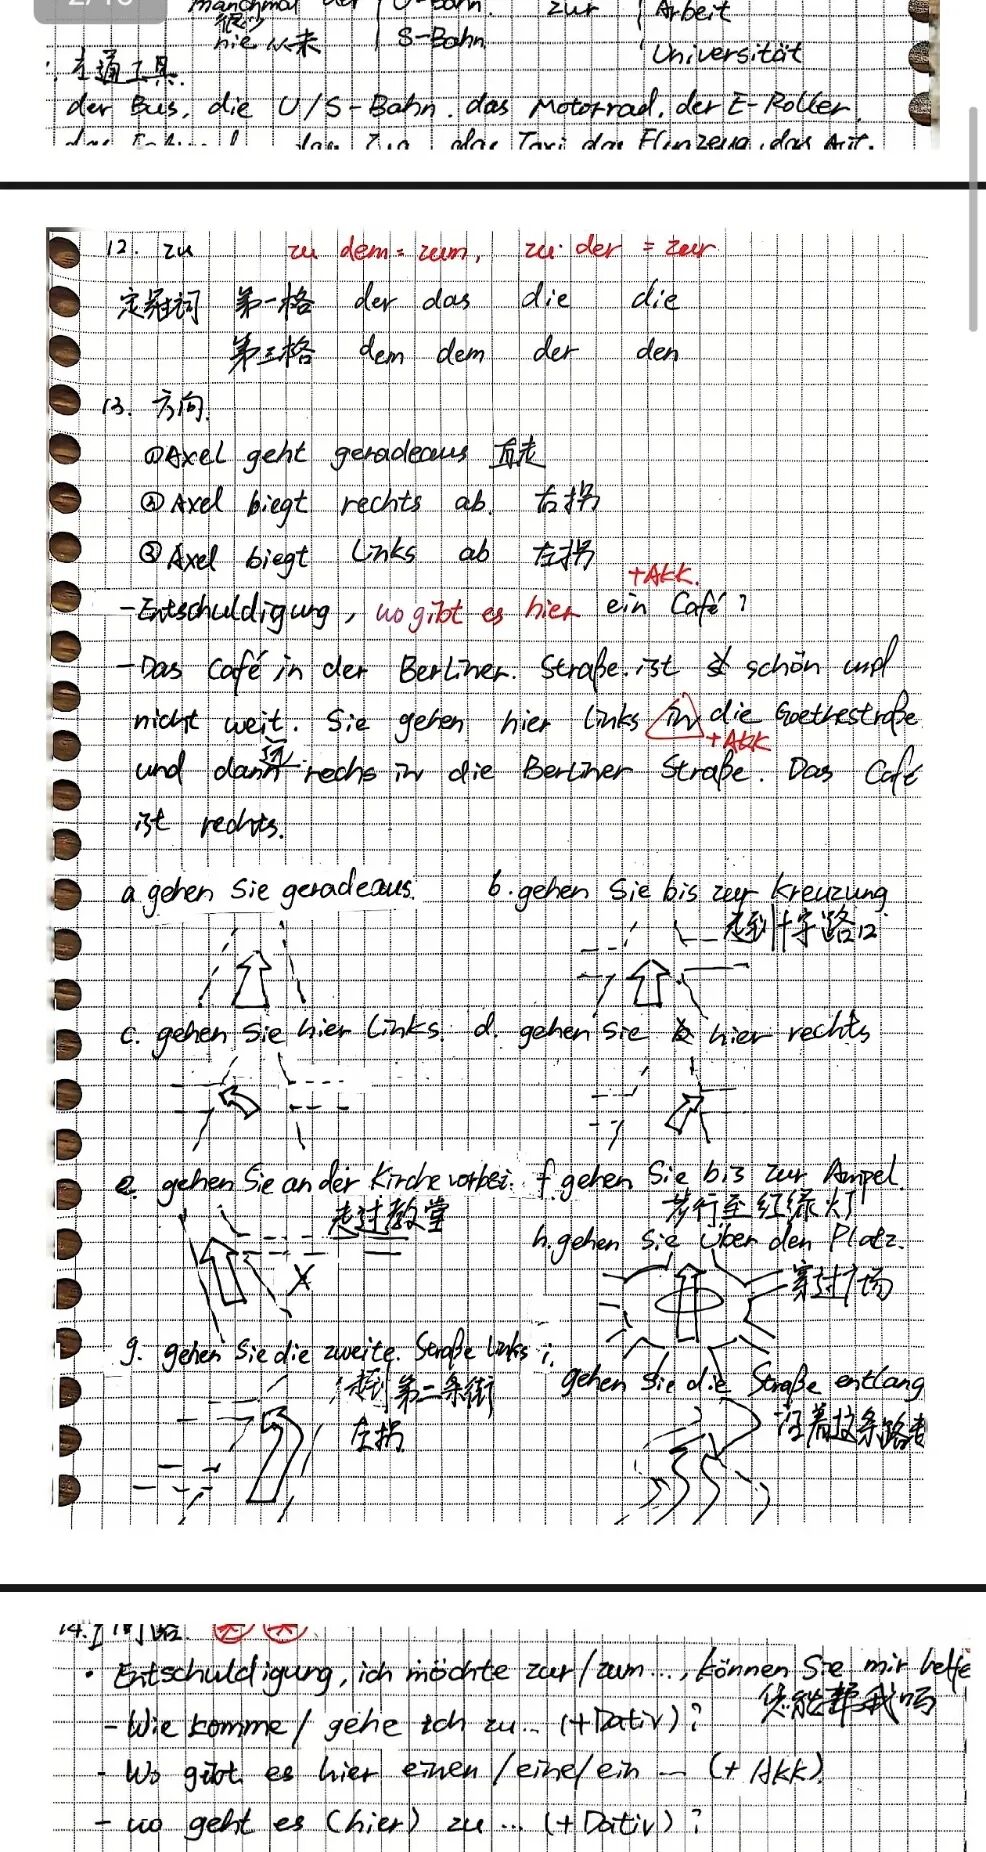 manchmal der U-Bahn. zur Arbeit
很少
nie 从来 S-Bahn Universität
交通工具.
der Bus, die U/S-Bahn. das Motorrad, der E-Roller,
das Taxi das
12. zu zu dem = zum, zu der = zur
定冠词 第一格 der das die die
第三格 dem dem der den
13. 方向.
①Axel geht geradeaus 直走
②Axel biegt rechts ab. 右拐
③Axel biegt Links ab 左拐
+Akk.
-Entschuldigung, wo gibt es hier ein Café?
-Das Café in der Berliner. Straße. ist schön und
nicht weit. Sie gehen hier links in die Goethestraße
+Akk
und dann rechs in die Berliner Straße. Das Café
ist rechts.
a. gehen Sie geradeaus. b. gehen Sie bis zur Kreuzung
走到十字路口
c. gehen Sie hier Links. d. gehen Sie hier rechts
e. gehen Sie an der Kirche vorbei. f. gehen Sie bis zur Ampel.
走过教堂 步行至红绿灯
h. gehen Sie über den Platz.
X 穿过广场
g. gehen Sie die zweite. Straße Links i.
gehen Sie die Straße entlang
走到第二条街
左拐 沿着这条路走
14. 问路.
· Entschuldigung, ich möchte zur/zum..., können Sie mir helfe
您能帮我吗
- Wie komme/gehe ich zu... (+Dativ)?
- Wo gibt es hier einen/eine/ein — (+Akk)
- wo geht es (hier) zu ... (+Dativ)?